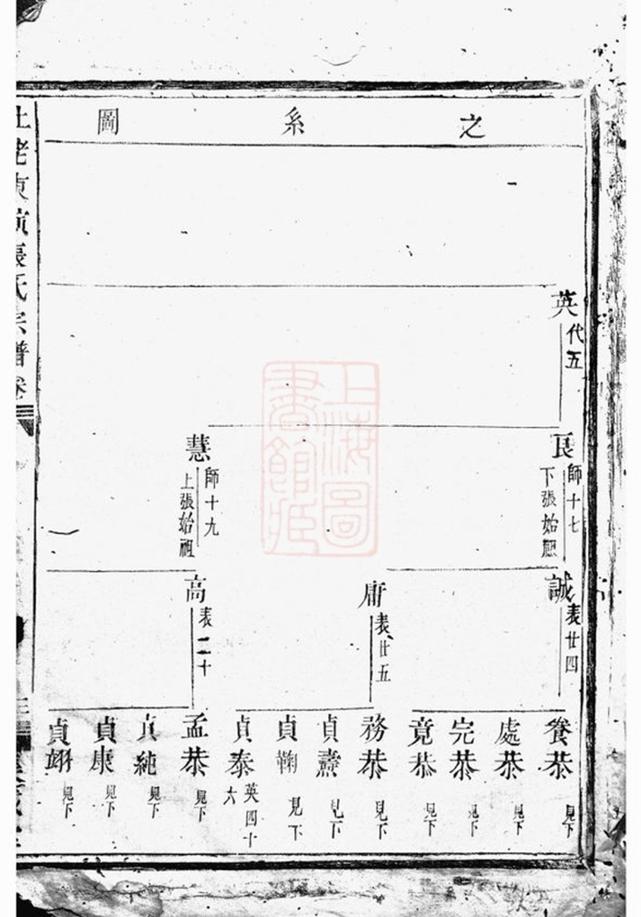 之系圖
英
代五
良
師十七
下張始祖
慧
師十九
上張始祖
誠
表廿四
庸
表廿五
高
表二十
養恭
見下
處恭
見下
完恭
見下
竟恭
見下
務恭
見下
貞燾
見下
貞鞠
見下
貞泰
英四十六
孟恭
見下
貞純
見下
貞康
見下
貞翊
見下
張氏宗譜卷
上海圖書館藏